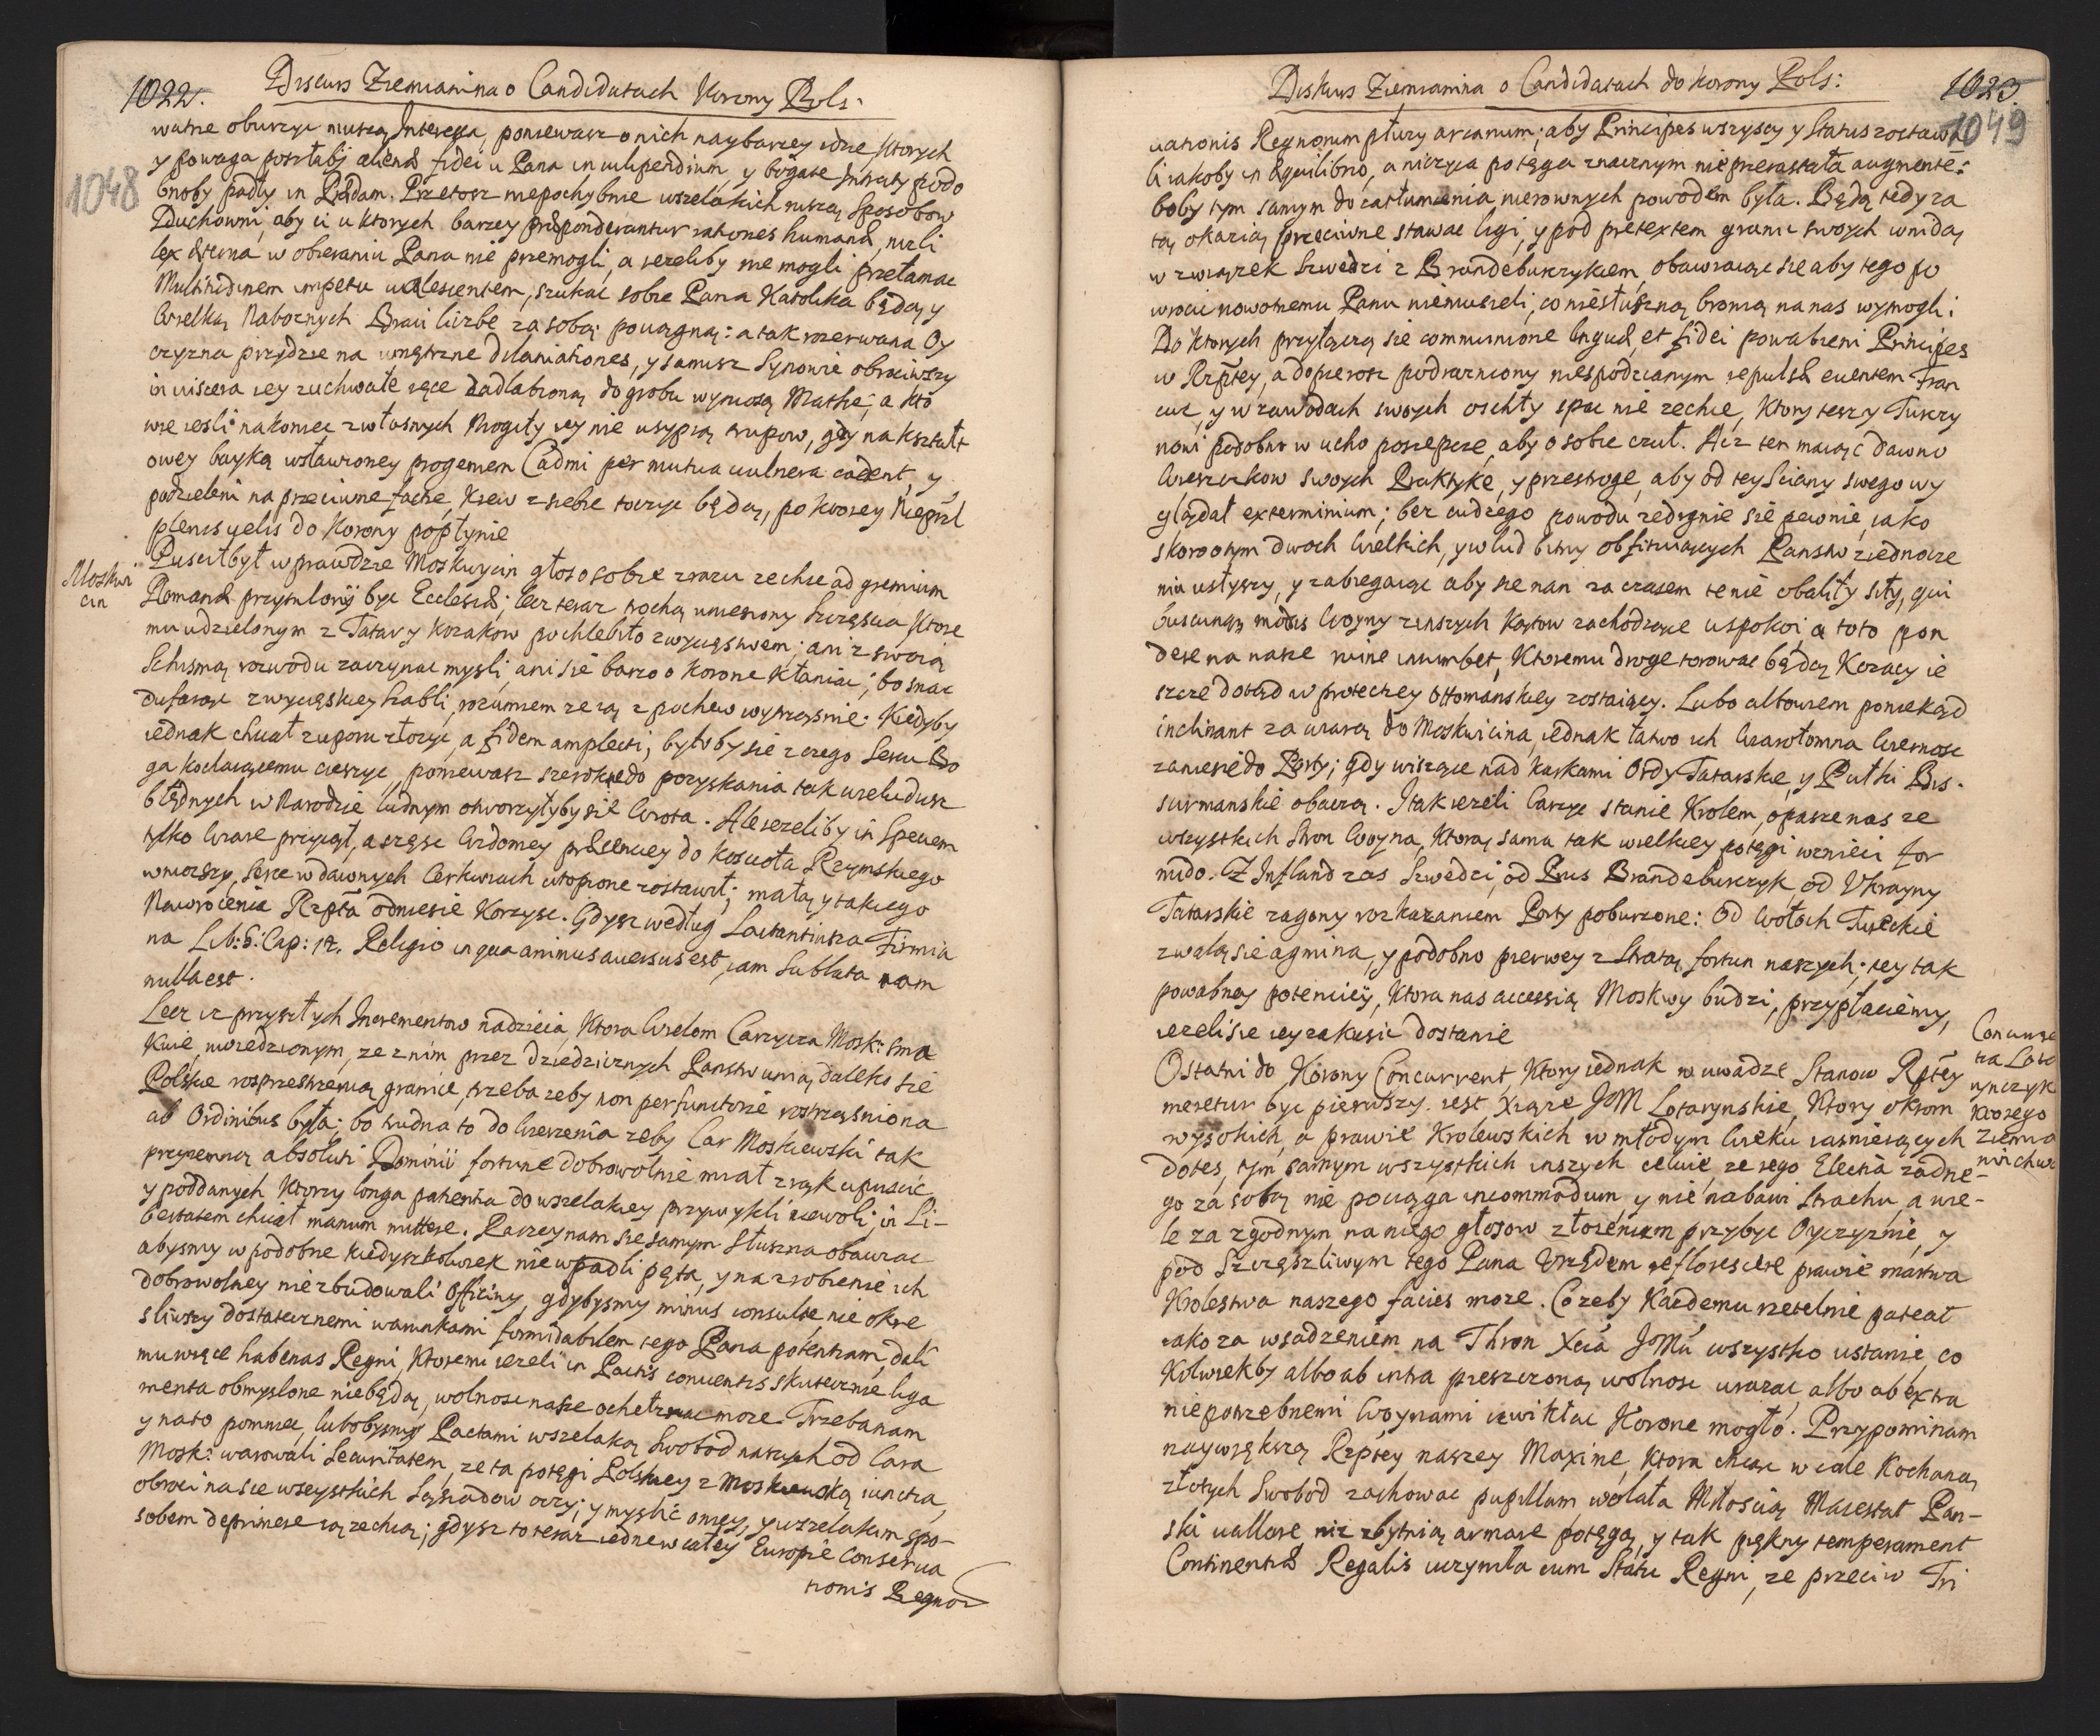 1022. Discurs Ziemianina o Candidatach Korony Pols:
1048
watne oburzyc muszą Interessa, poniewasz o nich naybarzey idzie ktorych
y powaga poszłaby alienæ fidei u Pana in vilipendium, y bogate Intraty podo
bnoby padły in Prædam. Przetosz niepochybnie wszelakich ruszą Sposobow
Duchowni, aby ci u ktorych barzey præponderantur rationes humanæ, nizli
lex æterna w obieraniu Pana nie przemogli, a iezeliby nie mogli przełamac
Multitudinem impetu valescentem, szukac sobie Pana Katolika będą y
Wielką Naboznych Braci liczbe za sobą pociągną: a tak rozerwana Oy
czyzna przydzie na wnętrzne dilaniationes, y samisz Synowie obrociwszy
in viscera iey zuchwałe ręce zadlabioną do grobu wyniosą Matkę; a kto
wie iesli nakoniec z własnych Mogiły iey nie usypią trupow, gdy na kształt
owey bayką wsławioney progeniem Cadmi per mutua vulnera cadent, y
podzieleni na przeciwne factie, Krew z siebie toczyc będą, po ktorey Nieprzy
plenis velis do Korony popłynie
Moskwi
cin
Puscił był wprawdzie Moskwicin głos o sobie zrazu ze chce ad gremium
Romanæ przytulony byc Ecclesiæ; lecz teraz trochą uniesiony Szczęscia ktore
mu udzielonym z Tatar y Kozakow pochlebiło zwycięstwem; ani z swoią
Schismą rozwodu zaczynac mysli, ani sie barzo o Korone kłaniac; bo snac
dufaiąc zwycięskiey Szabli, rozumiem ze ią z pochew wytrząsnie. Kiedyby
iednak chciał z uporu złozyc, a fidem amplecti, byłoby sie z czego Sercu Bo
ga kochaiącemu cieszyc, poniewasz szerokie do pozyskania tak wielu dusz
błędnych w Narodzie ludnym otworzyłyby sie Wrota. Ale iezeliby in Speciem
tylko Wiare przyiął, a częsc Widomey præsenciey do Koscioła Rzymskiego
wniozszy, serce w dawnych Cerkwiach utopione zostawił; małą z takiego
Nawrocenia Rzpta odniesie Korzysc. Gdysz według Lactantiusza Firmia
na Lib: 5: Cap: 12. Religio in qua animus aversus est, iam sublata iam
nulla est.
Lecz iz przyszłych Incrementow nadzieia, ktora Wielom Carzyca Mosk: sma
kuie, uwiedzionym, ze z nim przez dziedzicznych Panstw unią daleko sie
Polskie rosprzestrzenią granice, trzeba zeby non perfunctorie roztrząsniona
ab Ordinibus była; bo trudna to do Wierzenia zeby Car Moskiewski tak
przyiemną absoluti Dominii fortune dobrowolnie miał z rąk upuscic
y poddanych ktorzy longa patientia do wszelakiey przywykli niewoli; in Li-
bertatem chciał manum mittere. Raczey nam sie samym słuszna obawiac
abysmy w podobne kiedyszkolwiek nie wpadli pęta, y na zrobienie ich
dobrowolney nie zbudowali Officiny, gdybysmy minus consulte, nie okre
sliwszy dostatecznemi warunkami formidabilem tego Pana potentiam, dali
mu w ręce habenas Regni, ktoremu iezeli in Pactis conventis skutecznie liga
menta obmyslone niebędą, wolnosc nasze ochełznac moze. Trzeba nam
y na to pomniec, lubobysmy Pactami wszelaką Swobod naszych od Cara
Mosk: warowali Securitatem, ze ta potęgi Polskiey z Moskiewską iunctia,
obroci na sie wszystkich Sąsiadow oczy; y myslic oniey, y wszelakim spo-
sobem deprimere ią zechcą; gdysz to teraz iedne w całey Europie conserva
tionis Regnor
Diskurs Ziemianina o Candidatach do Korony Pols:
1023.
1049
vationis Regnorum płuzy arcanum; aby Principes wszyscy y Status zostawa
li iakoby in æquilibrio, a niczyia potęga znacznym nie przerastała augmente:
boby tym samym do zatłumienia nierownych powodem była. Będą tedy za
tą okazią przeciwne stawac ligi, y pod pretextem granic swoych wnidą
w związek Szwedzi z Brandeburczykiem, obawiaiąc sie aby tego po
wrocic nowotnemu Panu niemusieli, co niesłuszną bronią na nas wymogli:
Do ktorych przyłączą sie communione linguæ, et fidei powabieni Principes
w Rzptey, a dopierosz podrazniony niespodzianym repulsæ eventem Fran
cuz, y w zawodach swoych oschły spac nie zechce, ktory teszy Turczy
nowi podobno w ucho poszepcze, aby o sobie czuł. Acz ten maiąc dawno
Wieszczkow swoych Praktykę, y przestroge, aby od tey Sciany swego wy
glądał exterminium; bez cudzego powodu zedrgnie sie pewnie, iako
skoro o tym dwoch Wielkich, y w lud bitny obfituiących Panstw ziednocze
niu usłyszy, y zabiegaiąc aby sie nan za czasem te nie obaliły siły, qui
buscunq; modis Woyny z inszych kątow zachodzące uspokoi, a toto pon
dere na nasze ruine incumbet, ktoremu droge torowac będą Kozacy ie
szcze dotąd w protectiey Ottomanskiey zostaiący. Lubo albowiem poniekąd
inclinant za wiarą do Moskwicina, iednak łatwo ich Wiarołomna Wiernosc
zaniesie do Porty; gdy wiszące nad karkami Ordy Tatarskie, y Pułki Bis-
surmanskie obaczą. I tak iezeli Carzyc stanie Krolem, opasze nas ze
wszystkich stron Woyna, ktorą sama tak wielkiey potęgi wznieci for
mido. Z Infland zas Szwedzi, od Prus Brandeburczyk, od Ukrainy
Tatarskie zagony rozkazaniem Porty poburzone: Od Wołoch Tureckie
zwalą sie agmina, y podobno pierwey z Stratą fortun naszych; iey tak
powabney potenciey, ktora nas accessią Moskwy budzi, przypłaciemy,
iezeli sie iey zakusic dostanie
Ostatni do Korony Concurrent, ktory iednak w uwadze Stanow Rptey
meretur byc pierwszy. iest Xiąze JoM Lotarynskie, ktory okrom
wysokich, a prawie Krolewskich w młodym Wieku iasnieiących
dotes, tym samym wszystkich inszych celuie, ze iego Electia zadne-
go za sobą nie pociąga incommodum, y nie nabawi strachu, a wie-
le za zgodnym na niego głosow złozeniem przybyc Oyczyznie, y
pod Szczęszliwym tego Pana Urzędem reflorescere prawie martwa
Krolestwa naszego facies moze. Co zeby kazdemu rzetelnie pateat
iako za wsadzeniem na Thron Xcia JoMci wszystko ustanie, co
Kolwiekby albo ab intra pieszczoną wolnosc urazac, albo ab extra
niepotrzebnemi Woynami uwikłac Korone mogło. Przypominam
naywiększą Rzptey naszey Maxime, ktora chcąc w cale kochaną
złotych Swobod zachowac pupillam wolała Miłoscią Maiestat Pan-
ski vallare niz zbytnią armare potęgą, y tak piękny temperament
Continentiæ Regalis uczyniła cum Statu Regni, ze przeciw Tri
Concurre
ta Lota
rynczyk
ktorego
Ziemia
nin chwa